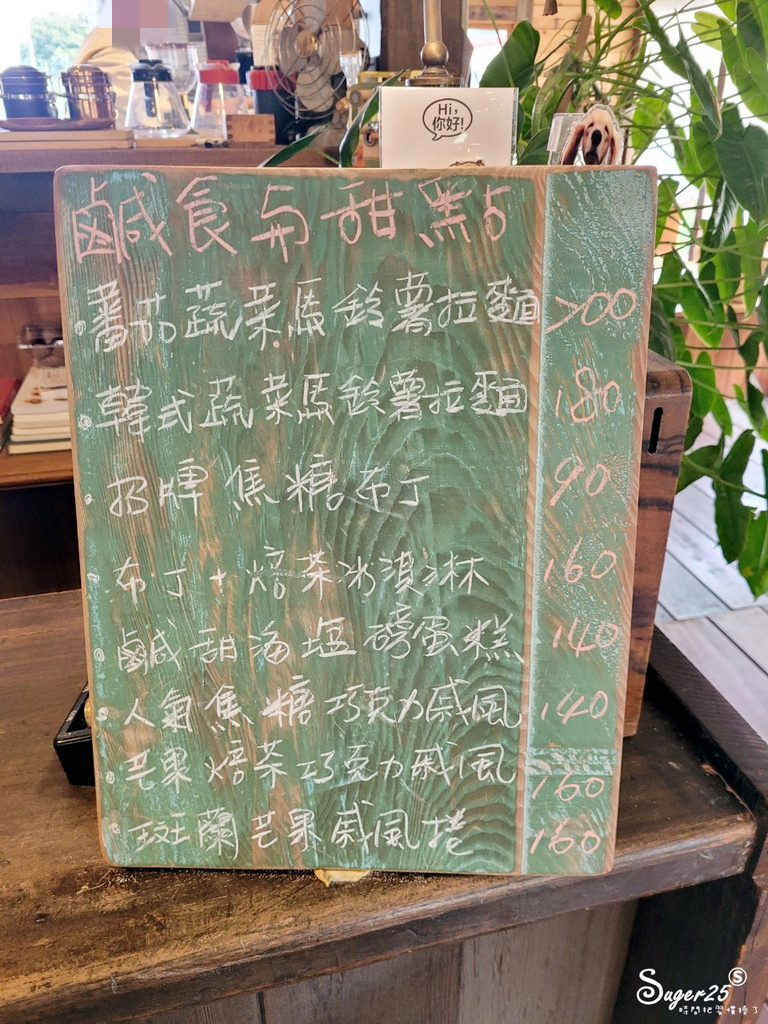 Hi,
你好!
鹹食与甜點
蕃茄蔬菜馬鈴薯拉麵 200
韓式蔬菜馬鈴薯拉麵 180
招牌焦糖布丁 90
布丁+焙茶冰淇淋 160
鹹甜海塩磅蛋糕 140
人氣焦糖巧克力戚風 140
芒果焙茶巧克力戚風 160
斑蘭芒果戚風捲 160
Suger25 S
時間把習慣換了